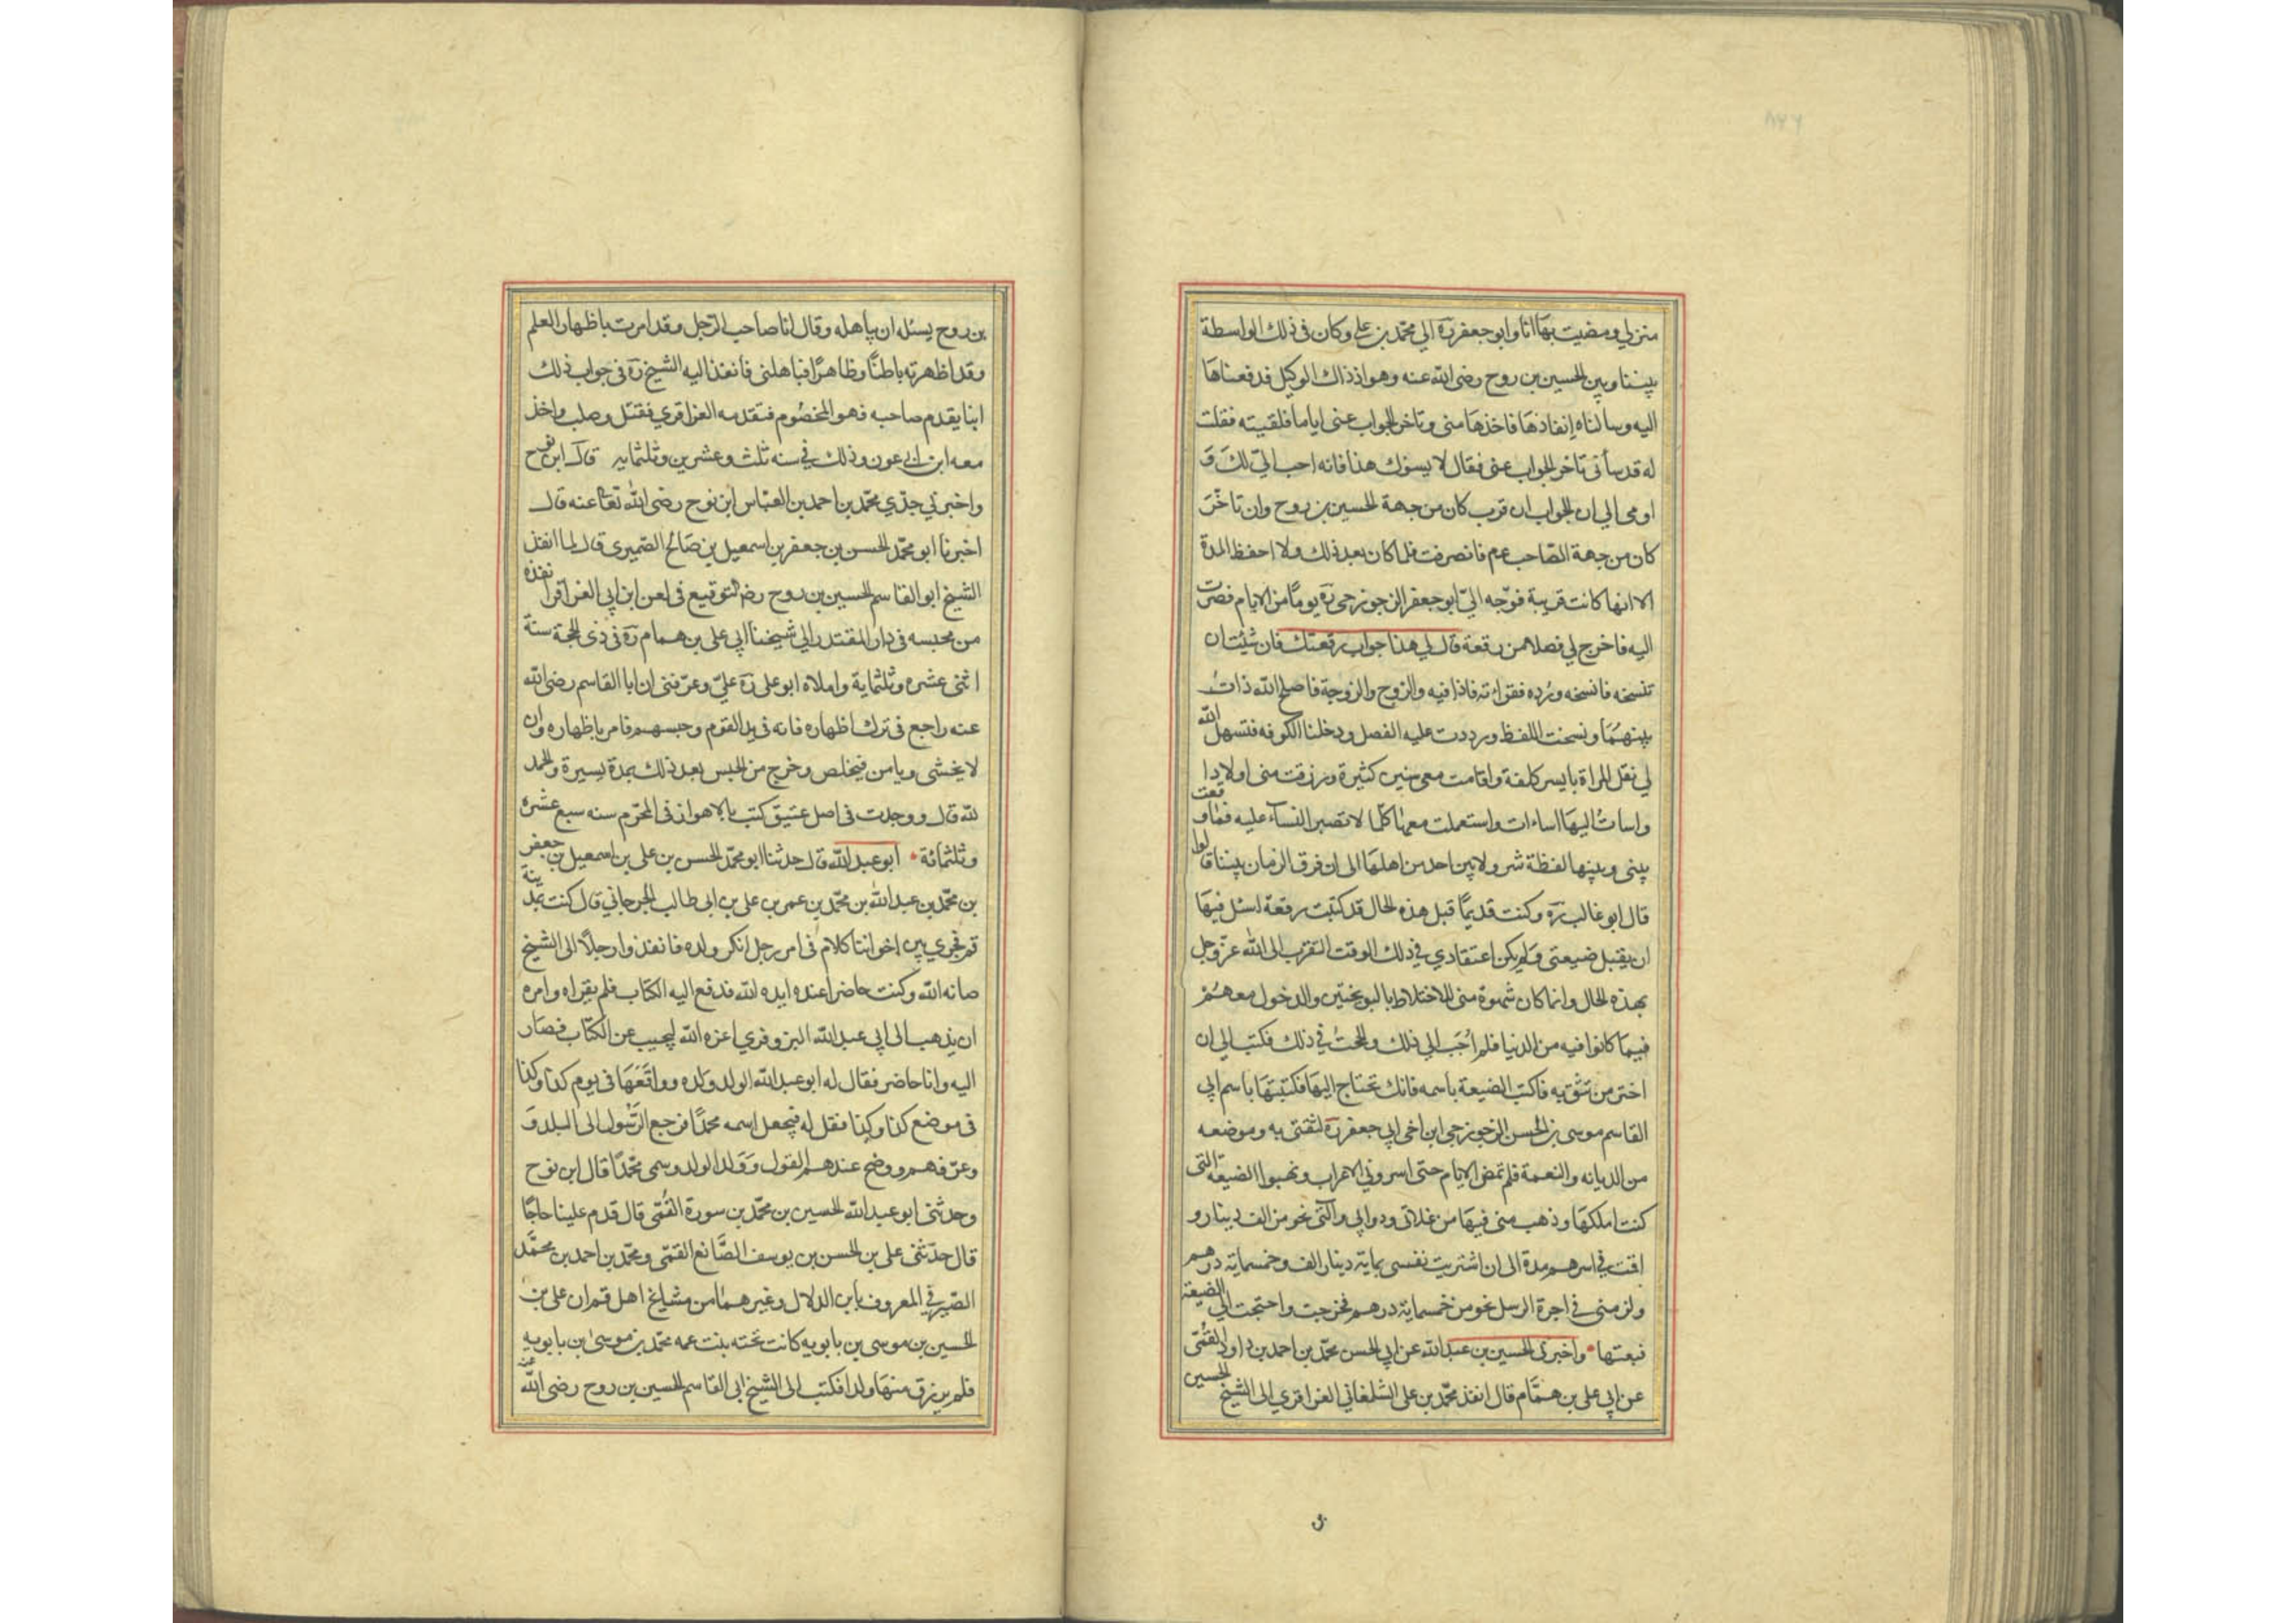 منزلي ومضيت بها انا وابو جعفر ره الي محمد بن علي وكان في ذلك الواسطة
بيننا وبين الحسين بن روح رضى الله عنه وهو اذ ذاك الوكيل فدفعناها
اليه وسالناه إنفاذها فاخذها مني وتاخر الجواب عنى اياما فلقيته فقلت
له قد سأني تاخر الجواب عني فقال لا يسؤك هذا فانه احب اليّ لك و
اومى الي ان الجواب ان قرب كان من جهة الحسين بن روح وان تاخر
كان من جهة الصاحب عم فانصرفت فلما كان بعد ذلك ولا احفظ المدة
الا انها كانت قريبة فوجّه اليّ ابو جعفر الزجوزجى ره يومًا من الايام فصرت
اليه فاخرج لي فصلا من رقعة قال لي هذا جواب رقعتك فان شئت ان
تنسخه فانسخه ورُده فقراته فاذا فيه والزوج والزوجة فاصلح الله ذات
بينهما ونسخت اللفظ ورددت عليه الفصل ودخلنا الكوفه فتسهل الله
لي نقل المراة بايسر كلفة واقامت معي سنين كثيرة ورزقت منى اولادا
واسأت اليها اساءات واستعملت معها كلما لا تصبر النسآء عليه فما وقعت
بيني وبينها لفظة شر ولا بين احد من اهلها الى ان فرق الزمان بيننا قالوا
قال ابو غالب ره وكنت قديمًا قبل هذه الحال قد كتبت رقعة اسئل فيها
ان يقبل ضيعتى ولم يكن اعتقادي في ذلك الوقت التقرب الى الله عزّ وجل
بهذه الحال وانما كان شهوة منى للاختلاط بالبوبختين والدخول معهم
فيما كانوا فيه من الدنيا فلم اُجَب الي ذلك والححت في ذلك فكتب الي ان
اختر من تثق به فاكتب الضيعة باسمه فانك تحتاج اليها فكتبتها باسم ابي
القاسم موسى بن الحسن الزجوزجي ابن اخي ابي جعفر ره لثقتى به وموضعه
من الديانه والنعمة فلم تمض الايام حتى اسروني الاعراب ونهبوا الضيعة التي
كنت املكها وذهب منى فيها من غلاتي ودوابي وآلتي نحو من الف دينار و
اقمت في اسرهم مدة الى ان اشتريت نفسى بماية دينار الف وخمسماية درهم
ولزمنى في اجرة الرسل نحو من خمسماية درهم فخرجت واحتجت الي الضيعة
فبعتها • واخبرنى الحسين بن عبد الله عن ابي الحسن محمد بن احمد بن داود القمي
عن ابي علي بن همام قال انفذ محمد بن على الشلمغاني العزاقري الى الشيخ الحسين
بن روح يسئله ان يباهله وقال انا صاحب الرّجل وقد امرت باظهار العلم
وقد اظهرته باطنًا وظاهرًا فباهلنى فأنفذ اليه الشيخ ره في جواب ذلك
اينا يقدم صاحبه فهو المخصُوم فتقدمه العزاقري فقتل وصلب واخذ
معه ابن ابي عون وذلك في سنه ثلث وعشرين وثلثمايه قال ابن نوح
واخبرني جدّي محمّد بن احمد بن العبّاس ابن نوح رضى الله تعا عنه قال
اخبرنا ابو محمّد الحسن بن جعفر بن اسمعيل بن صالح الصّميرى قال لما انفذ
الشيخ ابو القاسم الحسين بن روح رض التوقيع فى لعن ابن ابي العزاقر انفذه
من محبسه في دار المقتدر الي شيخنا ابي على بن همام ره في ذى الحجة سنة
اثنى عشره وثلثماية واملاه ابو على ره عليّ وعرّفني ان ابا القاسم رضى الله
عنه راجع في ترك اظهاره فانه في يد القوم وحبسهم فامر باظهاره وان
لا يخشى ويامن فيخلص وخرج من الحبس بعد ذلك بمدة يسيرة والحمد
لله قال ووجدت في اصل عتيق كتب بالاهواز في المحرّم سنه سبع عشره
وثلثمائة • ابو عبد الله قال حدثنا ابو محمّد الحسن بن على بن اسمعيل بن جعفر
بن محمّد بن عبد الله بن محمّد بن عمر بن على بن ابى طالب الجرجاني قال كنت بمدينة
قم فجرى بين اخواننا كلام فى امر رجل انكر ولده فانفذوا رجلًا الى الشيخ
صانه الله وكنت حاضرا عنده ايده الله فدفع اليه الكتاب فلم يقراه وامره
ان يذهب الى ابي عبد الله البزوفري اعزه الله ليجيب عن الكتاب فصار
اليه وانا حاضر فقال له ابو عبد الله الولد ولده وواقعها في يوم كذا وكذا
في موضع كذا وكذا فقل له فيجعل اسمه محمدًا فرجع الرسول الى البلد و
وعرّفهم ووضح عندهم القول ووَلد الولد وسمى محمّدًا قال ابن نوح
وحدثنى ابو عبد الله الحسين بن محمّد بن سورة القمّى قال قدم علينا حاجًا
قال حدّثنى على بن الحسن بن يوسف الصّانع القمّي ومحمّد بن احمد بن محمّد
الصّيرفي المعروف بابن الدلال وغيرهما من مشايخ اهل قم ان على بن
الحسين بن موسى بن بابويه كانت تحته بنت عمه محمّد بن موسى بن بابويه
فلم يرزق منها ولدا فكتب الى الشيخ ابى القاسم الحسين بن روح رضى الله عنه